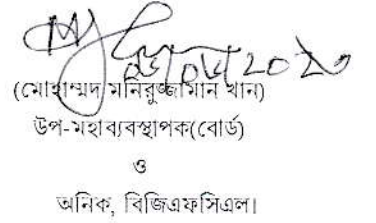 ০৬/০৮/২০২৩
(মোহাম্মদ মনিরুজ্জামান খান)
উপ-মহাব্যবস্থাপক(বোর্ড)
ও
অনিক, বিজিএফসিএল।